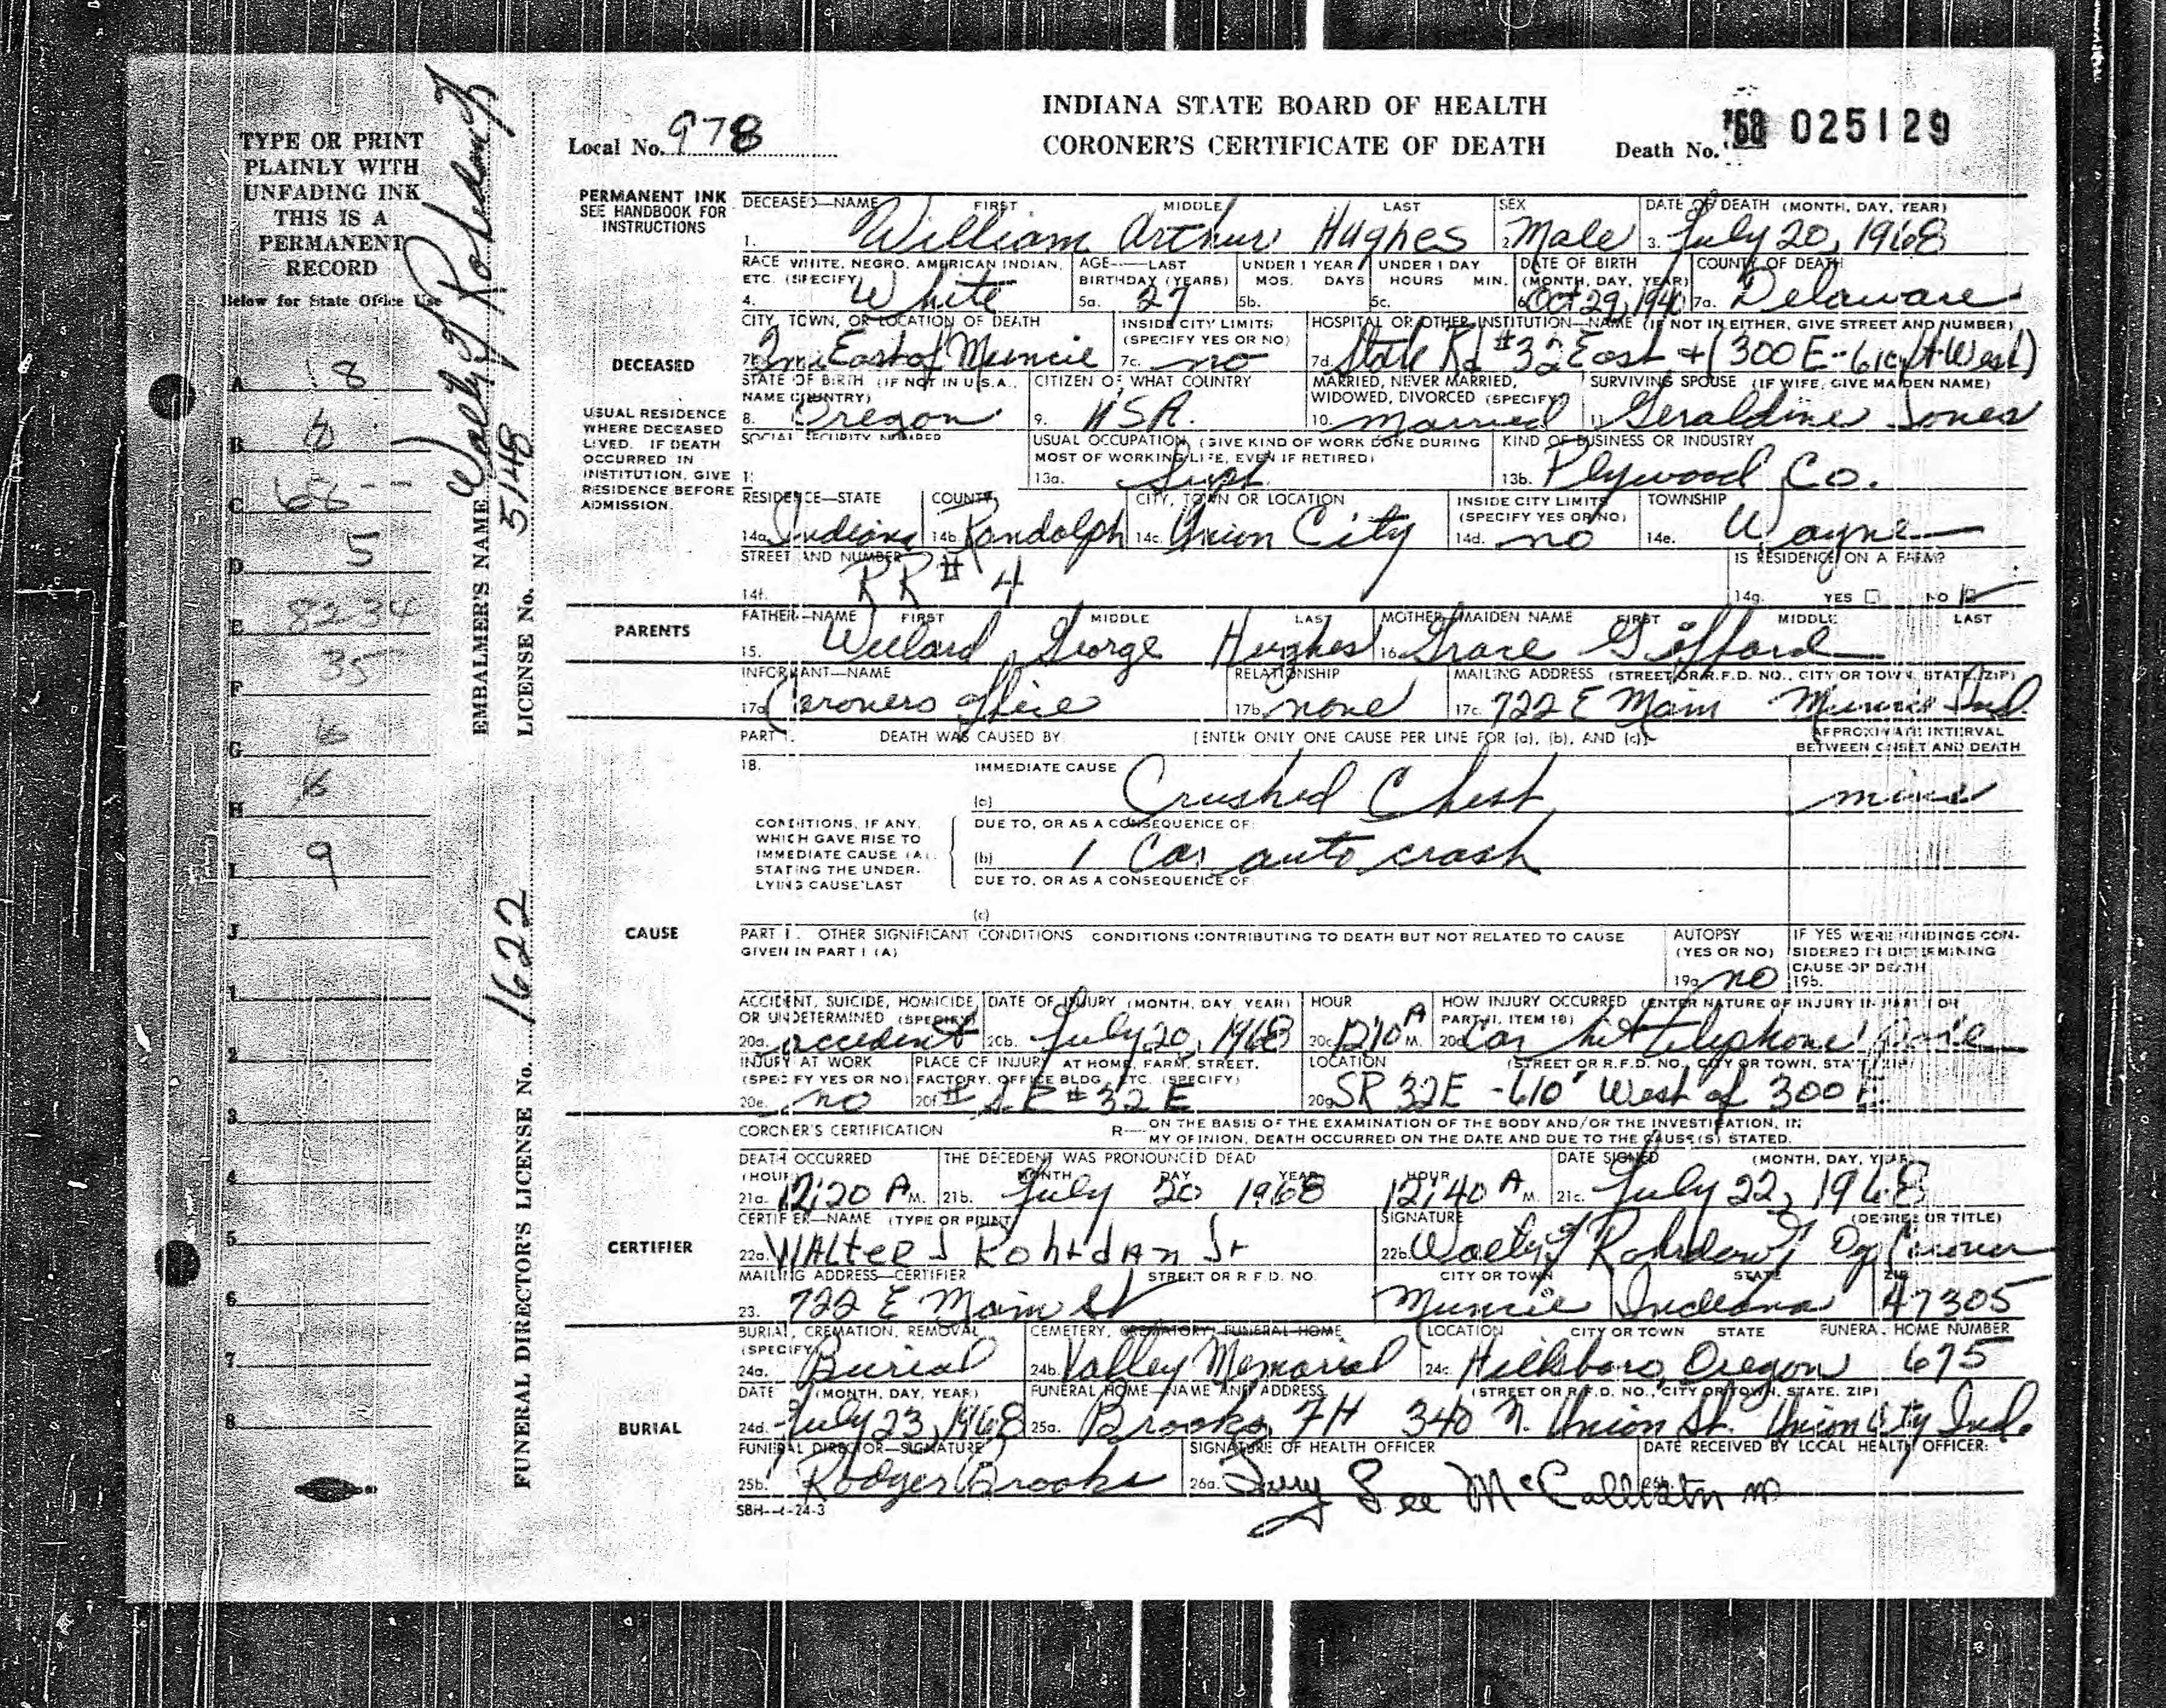 INDIANA STATE BOARD OF HEALTH
CORONER'S CERTIFICATE OF DEATH
Local No. 978
Death No. '68 025129
TYPE OR PRINT
PLAINLY WITH
UNFADING INK
THIS IS A
PERMANENT
RECORD
Below for State Office Use
A 18
B
C 68--
D 5
E 8234
F 35
G
H
I 9
J
1
2
3
4
5
6
7
8
EMBALMER'S NAME
LICENSE No. 5148
FUNERAL DIRECTOR'S LICENSE No. 1622
PERMANENT INK
SEE HANDBOOK FOR
INSTRUCTIONS
DECEASED—NAME FIRST MIDDLE LAST SEX DATE OF DEATH (MONTH, DAY, YEAR)
1. William Arthur Hughes 2. Male 3. July 20, 1968
RACE WHITE, NEGRO, AMERICAN INDIAN, AGE—LAST UNDER 1 YEAR UNDER 1 DAY DATE OF BIRTH COUNTY OF DEATH
ETC. (SPECIFY) BIRTHDAY (YEARS) MOS. DAYS HOURS MIN. (MONTH, DAY, YEAR)
4. White 5a. 27 5b. 5c. 6. Oct 29, 1940 7a. Delaware
DECEASED
CITY, TOWN, OR LOCATION OF DEATH INSIDE CITY LIMITS HOSPITAL OR OTHER INSTITUTION—NAME (IF NOT IN EITHER, GIVE STREET AND NUMBER)
(SPECIFY YES OR NO)
East of Muncie 7c. no 7d. State Rd #32 East + (300 E - 610 ft West)
STATE OF BIRTH (IF NOT IN U.S.A., CITIZEN OF WHAT COUNTRY MARRIED, NEVER MARRIED, SURVIVING SPOUSE (IF WIFE, GIVE MAIDEN NAME)
NAME COUNTRY) WIDOWED, DIVORCED (SPECIFY)
8. Oregon 9. USA. 10. Married 11. Geraldine Jones
USUAL RESIDENCE
WHERE DECEASED
LIVED. IF DEATH
OCCURRED IN
INSTITUTION, GIVE
RESIDENCE BEFORE
ADMISSION.
SOCIAL SECURITY NUMBER USUAL OCCUPATION (GIVE KIND OF WORK DONE DURING KIND OF BUSINESS OR INDUSTRY
MOST OF WORKING LIFE, EVEN IF RETIRED)
13a. Supt 13b. Plywood Co.
RESIDENCE—STATE COUNTY CITY, TOWN OR LOCATION INSIDE CITY LIMITS TOWNSHIP
(SPECIFY YES OR NO)
14a. Indiana 14b. Randolph 14c. Union City 14d. no 14e. Wayne
STREET AND NUMBER IS RESIDENCE ON A FARM?
14f. RR # 4 14g. YES NO
PARENTS
FATHER—NAME FIRST MIDDLE LAST MOTHER—MAIDEN NAME FIRST MIDDLE LAST
15. Willard George Hughes 16. Grace Gifford
INFORMANT—NAME RELATIONSHIP MAILING ADDRESS (STREET OR R.F.D. NO., CITY OR TOWN, STATE, ZIP)
17a. Coroners office 17b. none 17c. 722 E Main Muncie Ind
PART I. DEATH WAS CAUSED BY: [ENTER ONLY ONE CAUSE PER LINE FOR (a), (b), AND (c)] APPROXIMATE INTERVAL
BETWEEN ONSET AND DEATH
18. IMMEDIATE CAUSE
(a) Crushed Chest mins
CONDITIONS, IF ANY,
WHICH GAVE RISE TO
IMMEDIATE CAUSE (A),
STATING THE UNDER-
LYING CAUSE LAST
DUE TO, OR AS A CONSEQUENCE OF:
(b) 1 Car auto crash
DUE TO, OR AS A CONSEQUENCE OF:
(c)
CAUSE
PART II. OTHER SIGNIFICANT CONDITIONS CONDITIONS CONTRIBUTING TO DEATH BUT NOT RELATED TO CAUSE
GIVEN IN PART I (A)
AUTOPSY
(YES OR NO)
19a. no
IF YES WERE FINDINGS CON-
SIDERED IN DETERMINING
CAUSE OF DEATH
19b.
ACCIDENT, SUICIDE, HOMICIDE, DATE OF INJURY (MONTH, DAY, YEAR) HOUR HOW INJURY OCCURRED (ENTER NATURE OF INJURY IN PART I OR
OR UNDETERMINED (SPECIFY) PART II, ITEM 18)
20a. accident 20b. July 20, 1968 20c. 1210 A M. 20d. Car hit telephone pole
INJURY AT WORK PLACE OF INJURY AT HOME, FARM, STREET, LOCATION (STREET OR R.F.D. NO., CITY OR TOWN, STATE, ZIP)
(SPECIFY YES OR NO) FACTORY, OFFICE BLDG., ETC. (SPECIFY)
20e. no 20f. # S.R #32 E 20g. SR 32E - 610' West of 300 E
CORONER'S CERTIFICATION R— ON THE BASIS OF THE EXAMINATION OF THE BODY AND/OR THE INVESTIGATION, IN
MY OPINION, DEATH OCCURRED ON THE DATE AND DUE TO THE CAUSE(S) STATED.
DEATH OCCURRED THE DECEDENT WAS PRONOUNCED DEAD DATE SIGNED (MONTH, DAY, YEAR)
(HOUR) MONTH DAY YEAR HOUR
21a. 12:20 A M. 21b. July 20 1968 12:40 A M. 21c. July 22, 1968
CERTIFIER
CERTIFIER—NAME (TYPE OR PRINT) SIGNATURE (DEGREE OR TITLE)
22a. WALTER J 22b. Coroner
MAILING ADDRESS—CERTIFIER STREET OR R.F.D. NO. CITY OR TOWN STATE ZIP
23. 722 E Main St Muncie Indiana 47305
BURIAL, CREMATION, REMOVAL CEMETERY, CREMATORY, FUNERAL HOME LOCATION CITY OR TOWN STATE FUNERAL HOME NUMBER
(SPECIFY)
24a. Burial 24b. Valley Memorial 24c. Hillsboro, Oregon 675
BURIAL
DATE (MONTH, DAY, YEAR) FUNERAL HOME—NAME AND ADDRESS (STREET OR R.F.D. NO., CITY OR TOWN, STATE, ZIP)
24d. July 23, 1968 25a. Brooks FH 340 N. Union St. Union City Ind.
FUNERAL DIRECTOR—SIGNATURE SIGNATURE OF HEALTH OFFICER DATE RECEIVED BY LOCAL HEALTH OFFICER:
25b. Rodger Brooks 26a. Lee
24-3